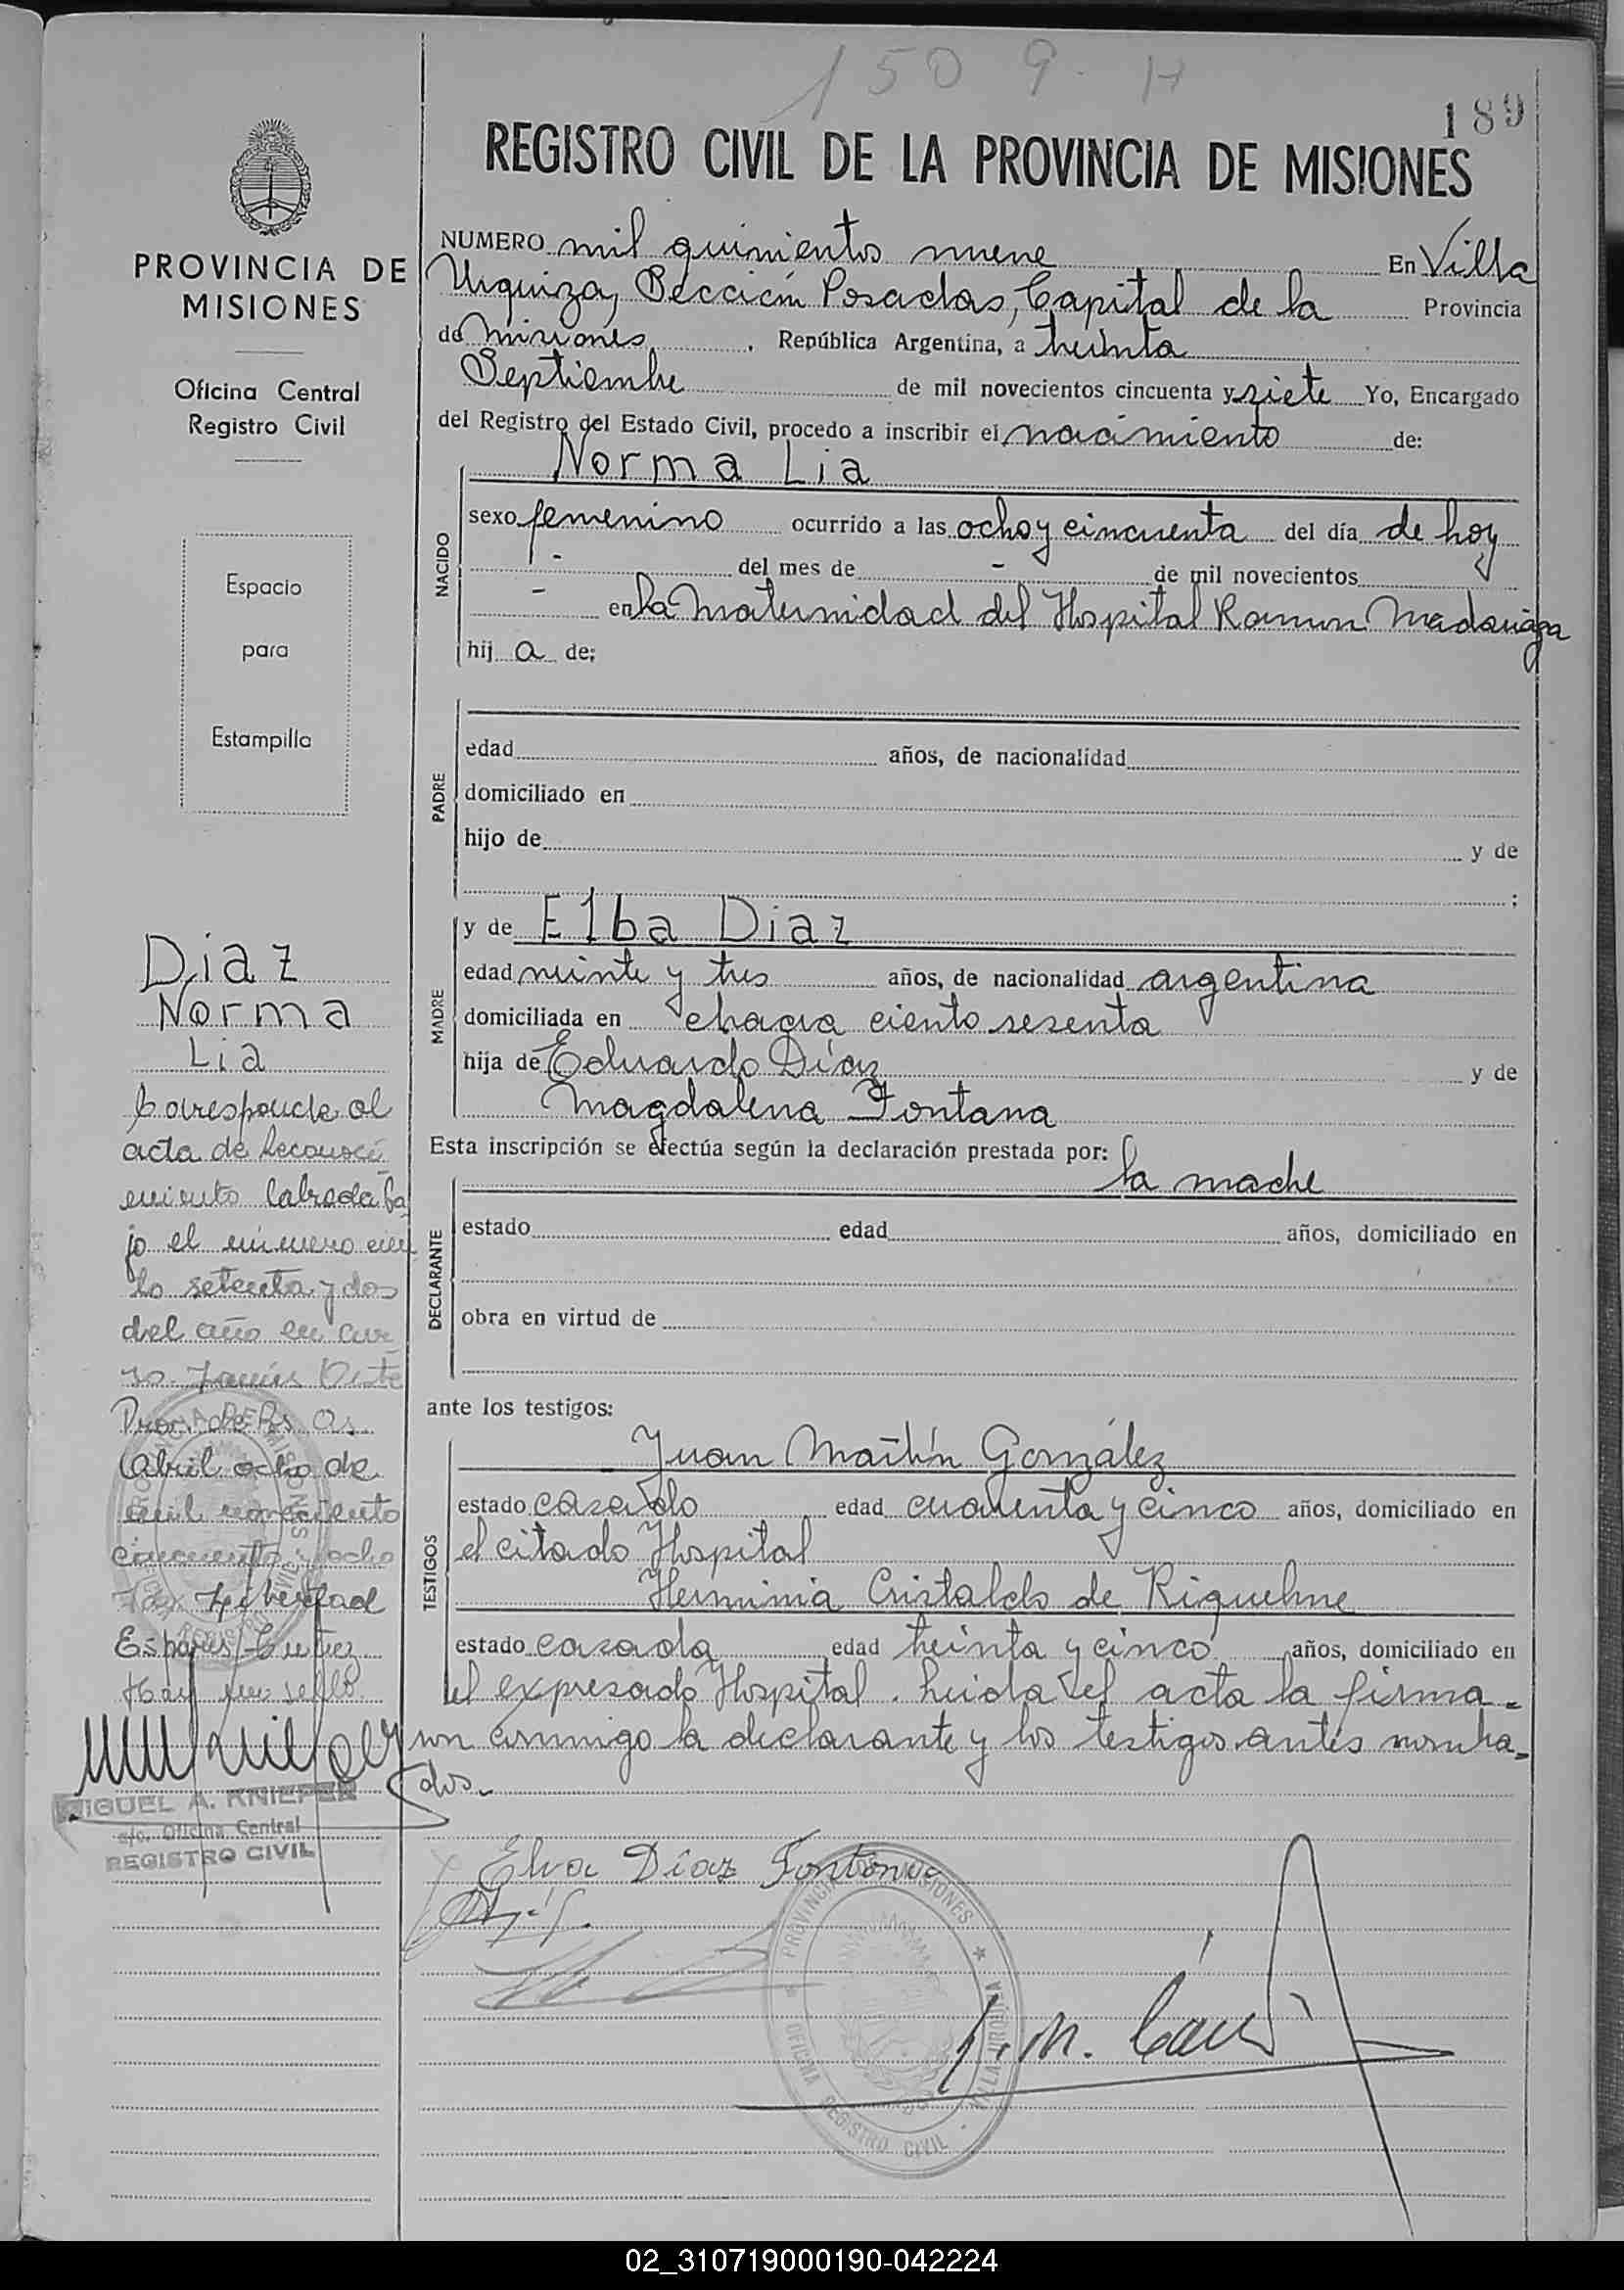 1509. H
189
REGISTRO CIVIL DE LA PROVINCIA DE MISIONES
PROVINCIA DE
MISIONES
Oficina Central
Registro Civil
Espacio
para
Estampilla
NUMERO mil quinientos nueve En Villa
Urquiza, Sección Posadas, Capital de la Provincia
de Misiones, República Argentina, a treinta
Septiembre de mil novecientos cincuenta y siete Yo, Encargado
del Registro del Estado Civil, procedo a inscribir el nacimiento de:
NACIDO
Norma Lia
sexo femenino ocurrido a las ocho y cincuenta del día de hoy
- del mes de - de mil novecientos
- en la Maternidad del Hospital Ramon Madariaga
hij a de;
PADRE
edad años, de nacionalidad
domiciliado en
hijo de y de
;
MADRE
y de Elba Diaz
edad veinte y tres años, de nacionalidad argentina
domiciliada en chacra ciento sesenta
hija de Eduardo Díaz y de
Magdalena Fontana
Esta inscripción se efectúa según la declaración prestada por:
DECLARANTE
la madre
estado edad años, domiciliado en
obra en virtud de
ante los testigos:
TESTIGOS
Juan Martín González
estado casado edad cuarenta y cinco años, domiciliado en
el citado Hospital
Herminia Cristaldo de Riquelme
estado casada edad treinta y cinco años, domiciliado en
el expresado Hospital. Leida el acta la firma=
ron conmigo la declarante y los testigos antes nombra=
dos.-
Diaz
Norma
Lia
Corresponde al
acta de Reconoci
miento labrada ba
jo el número cien
to setenta y dos
del año en cur
so.
Abril ocho de
mil novecientos
cincuenta y ocho
Libertad
Hay un sello
MIGUEL A. KNIEPER
a/c. Oficina Central
REGISTRO CIVIL
Elva Díaz Fontana
PROVINCIA DE MISIONES
OFICINA REGISTRO CIVIL
VILLA URQUIZA
02_310719000190-042224